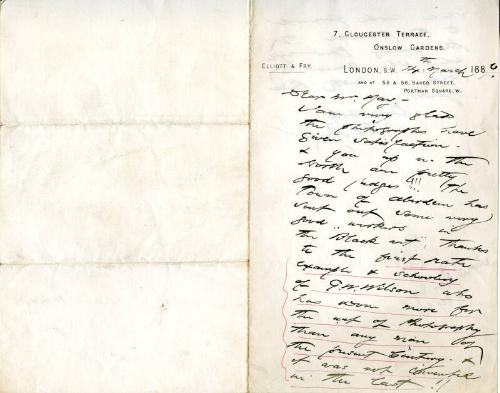 7, GLOUCESTER TERRACE,
ONSLOW GARDENS,
ELLIOTT & FRY.
LONDON, S.W. March 188
AND AT 55 & 56, BAKER STREET,
PORTMAN SQUARE, W.
Dear Mr. Hay,-
I am very glad
the photographs have
given satisfaction.
& you up in the
North are pretty
good judges!!! (The
Town of Aberdeen has
sent out some very
good workers in
the Black art, thanks
to the first rate
example & schooling
of G.W. Wilson who
has done more for
the art of Photography
than any man of
the present Century. &
it was not
in the East!!